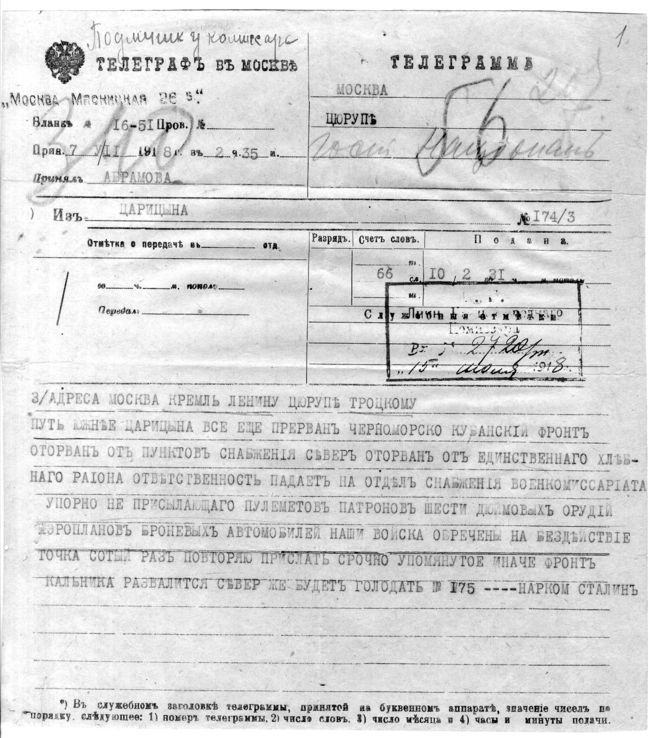 1.
ТЕЛЕГРАФЪ ВЪ МОСКВѢ
ТЕЛЕГРАММА
„Москва Мясницкая 26
МОСКВА
ЦЮРУПѢ
Бланкъ 16-51 Пров. №
Прин. 7 /II 1918 г. въ 2 ч. 35 м.
Принялъ АБРАМОВА
Изъ ЦАРИЦЫНА
№ 174/3
Отмѣтка о передачѣ въ отд.
Разрядъ. Счетъ словъ. Подана.
66 сл. 10 2 31
ч. м. попол.
Передалъ
Служебныя отмѣтки
"15" 1918.
З/АДРЕСА МОСКВА КРЕМЛЬ ЛЕНИНУ ЦЮРУПѢ ТРОЦКОМУ
ПУТЬ ЮЖНѢЕ ЦАРИЦЫНА ВСЕ ЕЩЕ ПРЕРВАН ЧЕРНОМОРСКО КУБАНСКІЙ ФРОНТЪ
ОТОРВАН ОТЪ ПУНКТОВЪ СНАБЖЕНІЯ СѢВЕР ОТОРВАН ОТЪ ЕДИНСТВЕННАГО ХЛѢБ-
НАГО РАІОНА ОТВѢТСТВЕННОСТЬ ПАДАЕТЪ НА ОТДѢЛ СНАБЖЕНІЯ ВОЕНКОМИССАРІАТА
УПОРНО НЕ ПРИСЫЛАЮЩАГО ПУЛЕМЕТОВЪ ПАТРОНОВЪ ШЕСТИ ДЮЙМОВЫХЪ ОРУДІЙ
АЭРОПЛАНОВЪ БРОНЕВЫХЪ АВТОМОБИЛЕЙ НАШИ ВОЙСКА ОБРЕЧЕНЫ НА БЕЗДѢЙСТВІЕ
ТОЧКА СОТЫЙ РАЗЪ ПОВТОРЯЮ ПРИСЛАТЬ СРОЧНО УПОМЯНУТОЕ ИНАЧЕ ФРОНТЪ
КАЛЬНИКА РАЗВАЛИТСЯ СѢВЕР ЖЕ БУДЕТЪ ГОЛОДАТЬ № 175 ----НАРКОМ СТАЛИНЪ
*) Въ служебномъ заголовкѣ телеграммы, принятой на буквенномъ аппаратѣ, значеніе чиселъ по
порядку слѣдующее: 1) номеръ телеграммы, 2) число словъ, 3) число мѣсяца и 4) часы и минуты подачи.